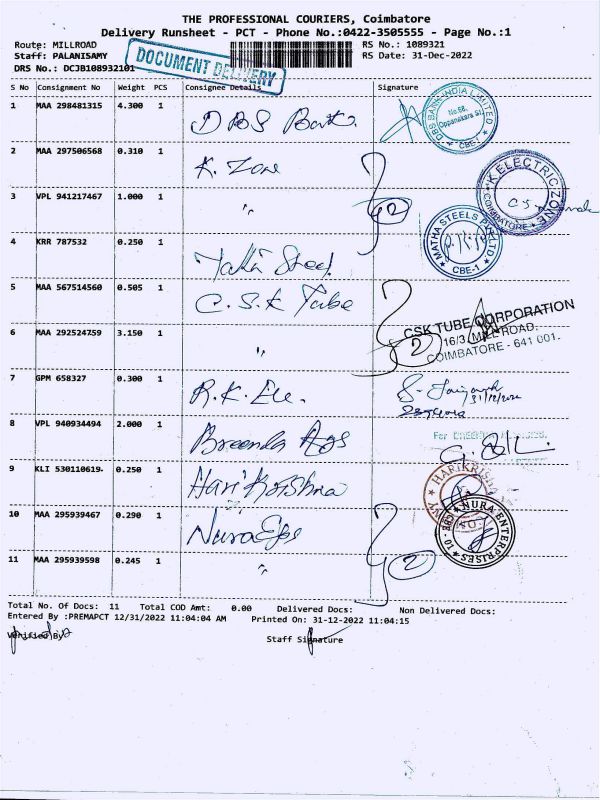 THE PROFESSIONAL COURIERS, Coimbatore
Delivery Runsheet - PCT - Phone No.:0422-3505555 - Page No.:1
Route: MILLROAD
RS No.: 1089321
Staff: PALANISAMY
RS Date: 31-Dec-2022
DRS No.: DCJB108932101
DOCUMENT DELIVERY
S No Consignment No Weight PCS Consignee Details Signature
1 MAA 298481315 4.300 1 DBS Bank.
DBS BANK INDIA LIMITED
No.58, Oppanakara St
CBE-1
2 MAA 297506568 0.310 1 K. Zone
K ELECTRIC ZONE
COIMBATORE
3 VPL 941217467 1.000 1 "
2
MATHA STEELS PVT LTD
CBE-1
4 KRR 787532 0.250 1 Matha Steel
5 MAA 567514560 0.505 1 C.S.K Tube
CSK TUBE CORPORATION
16/3, MILL ROAD,
COIMBATORE - 641 001.
6 MAA 292524759 3.150 1 "
2
7 GPM 658327 0.300 1 R.K. Ele.
31/12/2022
8 VPL 940934494 2.000 1 Breenda Ags
For
9 KLI 530110619 0.250 1 Hari Krishna
HARIKRISHNA
10 MAA 295939467 0.290 1 Nura Eps
NURA ENTERPRISES
11 MAA 295939598 0.245 1 "
2
Total No. Of Docs: 11 Total COD Amt: 0.00 Delivered Docs: Non Delivered Docs:
Entered By :PREMAPCT 12/31/2022 11:04:04 AM Printed On: 31-12-2022 11:04:15
Verified By
Staff Signature